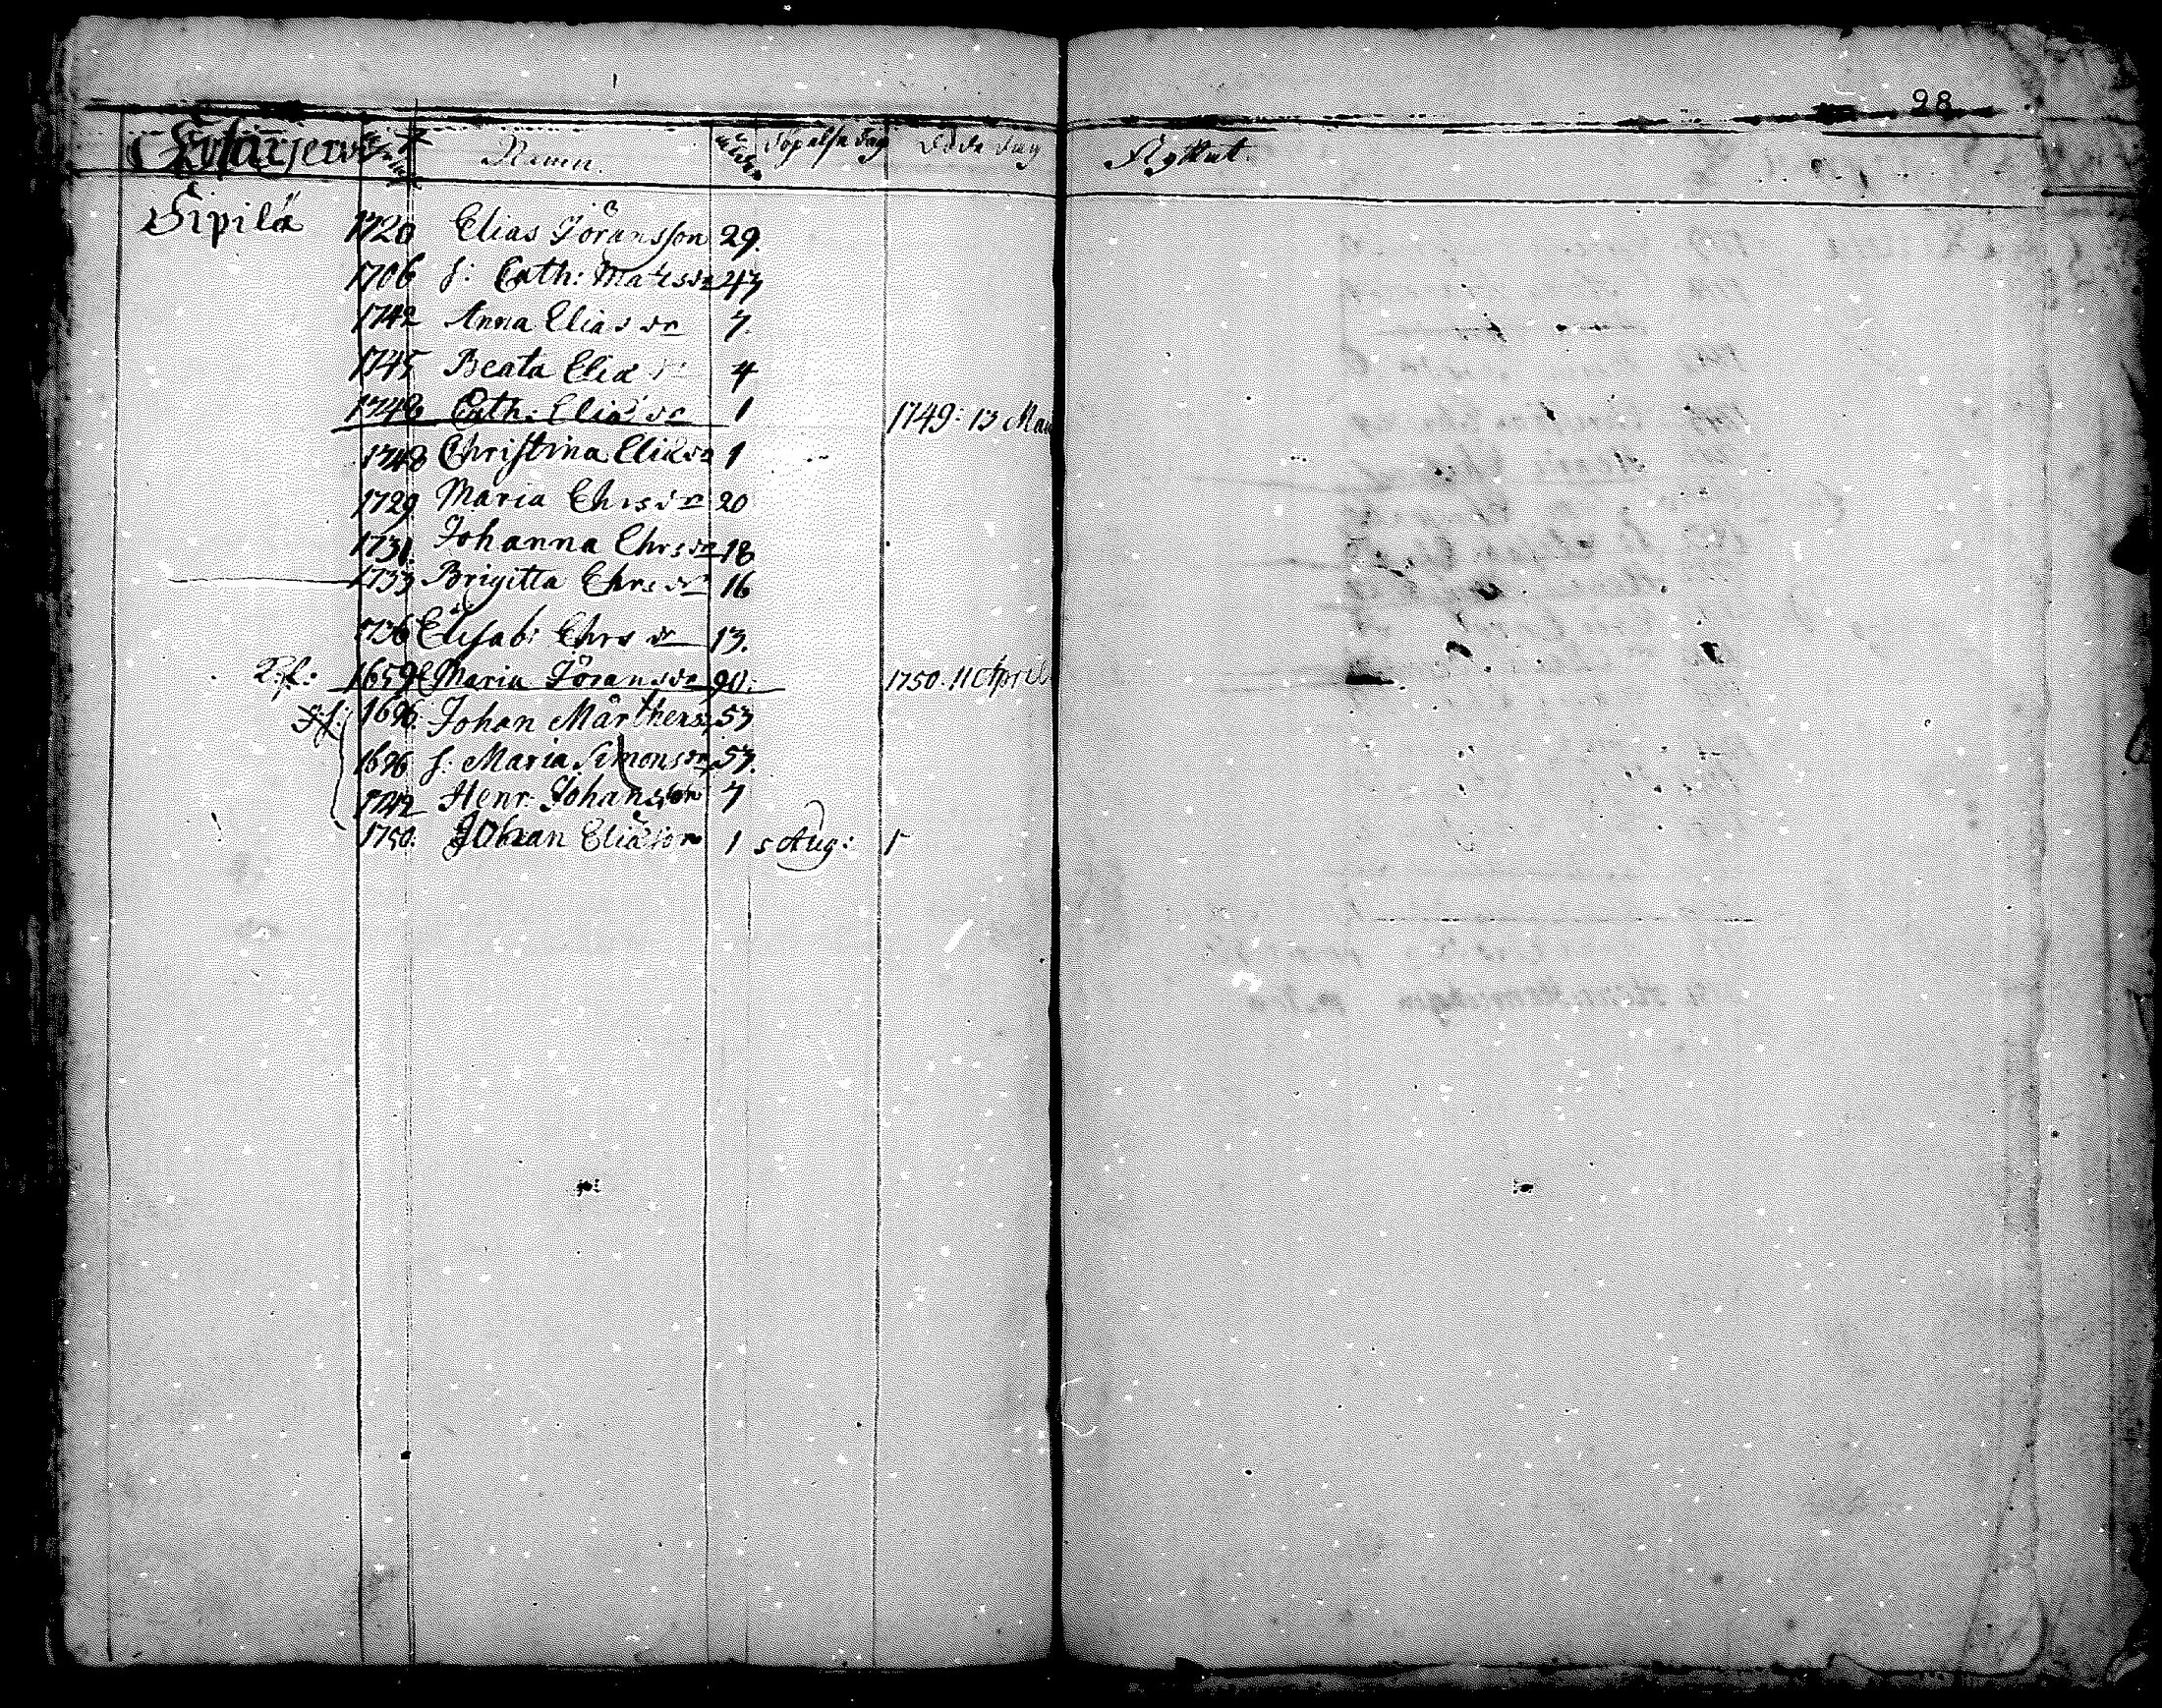 98
Namn. Födelse dag Döde dag Flyttat.
Sipilä 1720 Elias Jöransson 29.
1706 h: Cath: Matsdr 43
1742 Anna Elias dr 7.
1745 Beata Elia 4
1748 Cath: Elia dr 1 1749: 13 Maii
1748 Christina Elia dr 1
1729 Maria Chrs dr 20
1731. Johanna Chrs dr 18
1733 Brigitta Chrs dr 16
1736 Elisab: Chrs dr 13.
1659 Maria Jöransdr 90. 1750. 11 April
1696 Johan Mårthens 53
1696 h: Maria Simonsdr 53.
1742 Henr. Johansson 7
1750. Johan Eliasson 1 5 Aug: